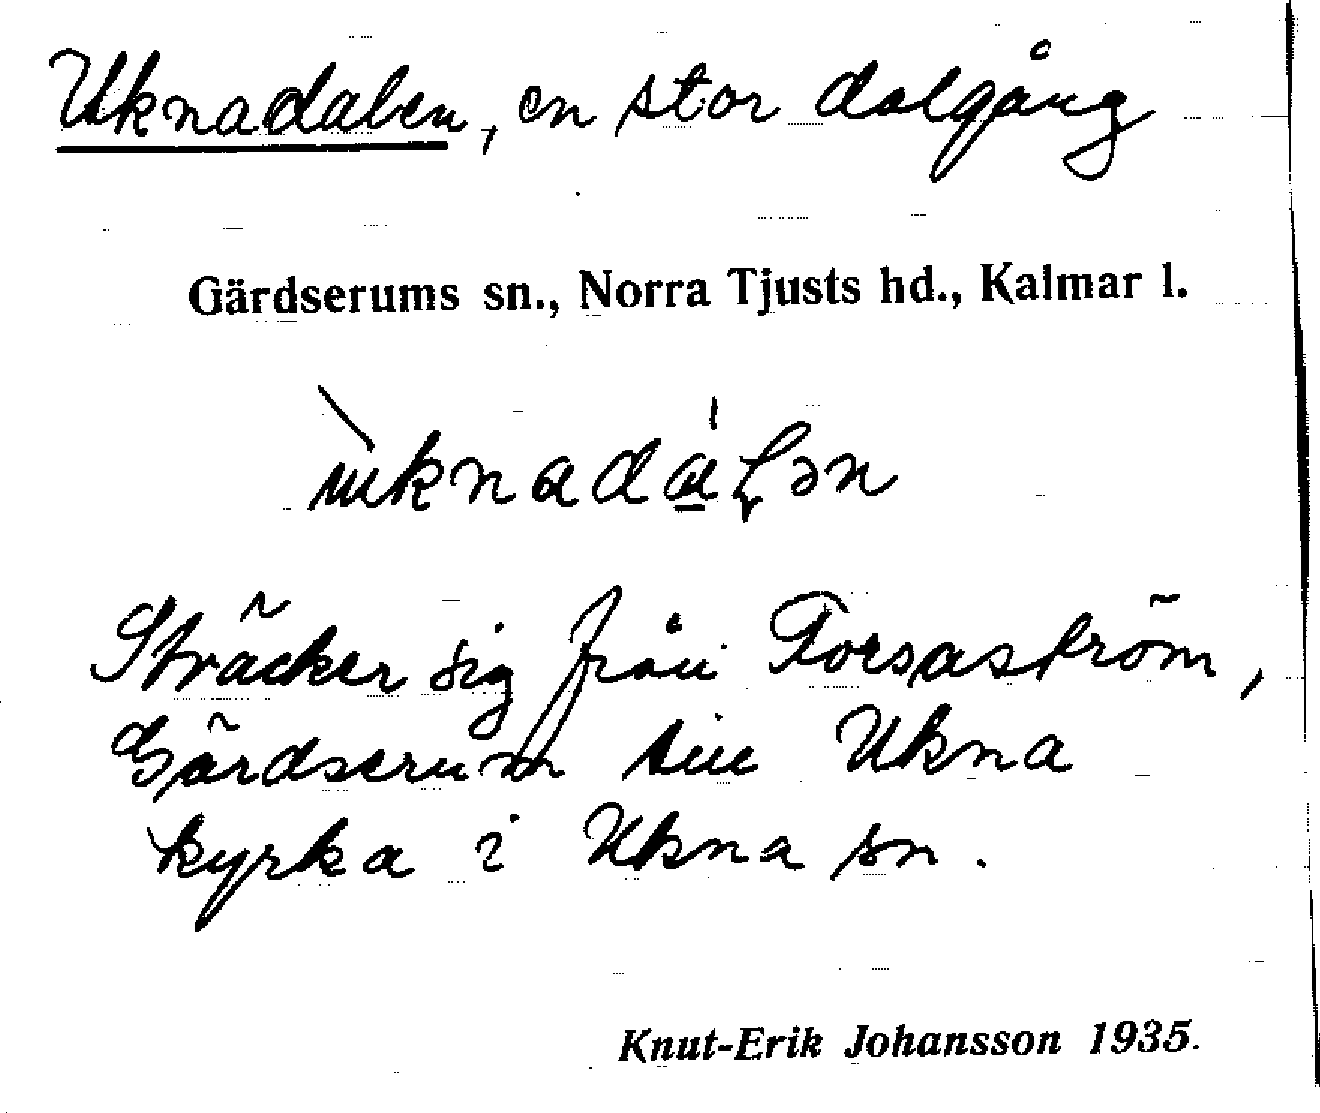 Uknadalen, en stor dalgång
Gärdserums sn., Norra Tjusts hd., Kalmar l.
Sträcker sig från Forsaström,
Gärdserum till Ukna
kyrka i Ukna sn.
Knut-Erik Johansson 1935.